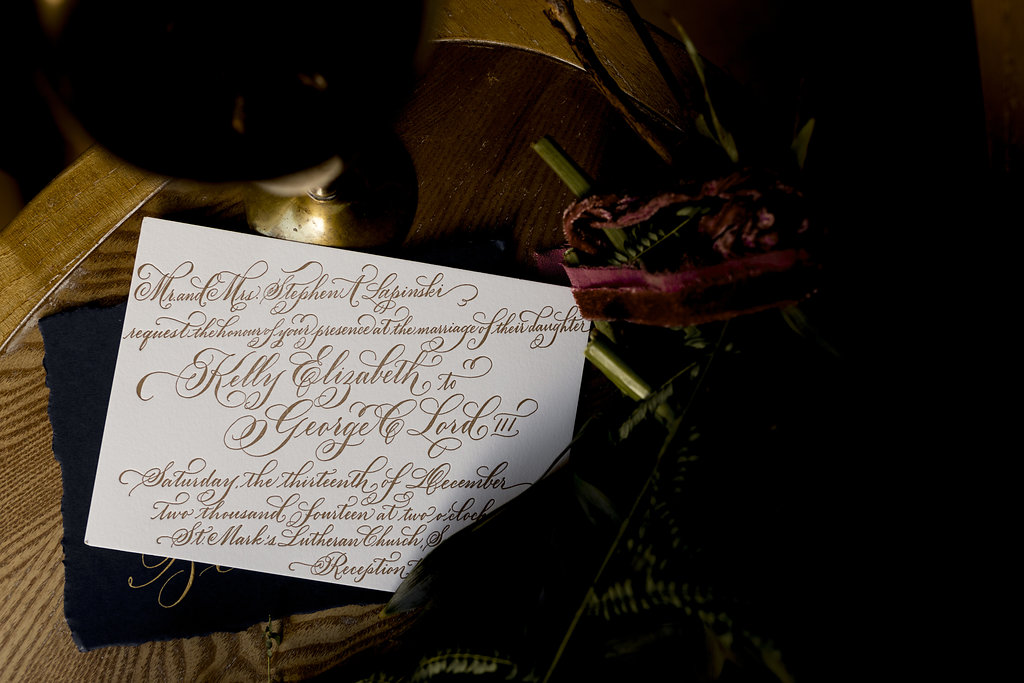 Mr. and Mrs. Stephen A Lapinski
request the honour of your presence at the marriage of their daughter
Kelly Elizabeth to
George C Lord III
Saturday, the thirteenth of December
two thousand fourteen at two o'clock
St Mark's Lutheran Church,
Reception